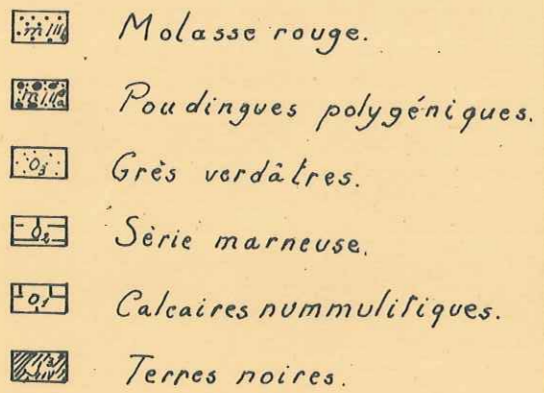 m III Molasse rouge.
Poudingues polygéniques.
o3 Grès verdâtres.
o2 Série marneuse.
o1 Calcaires nummulitiques.
Terres noires.